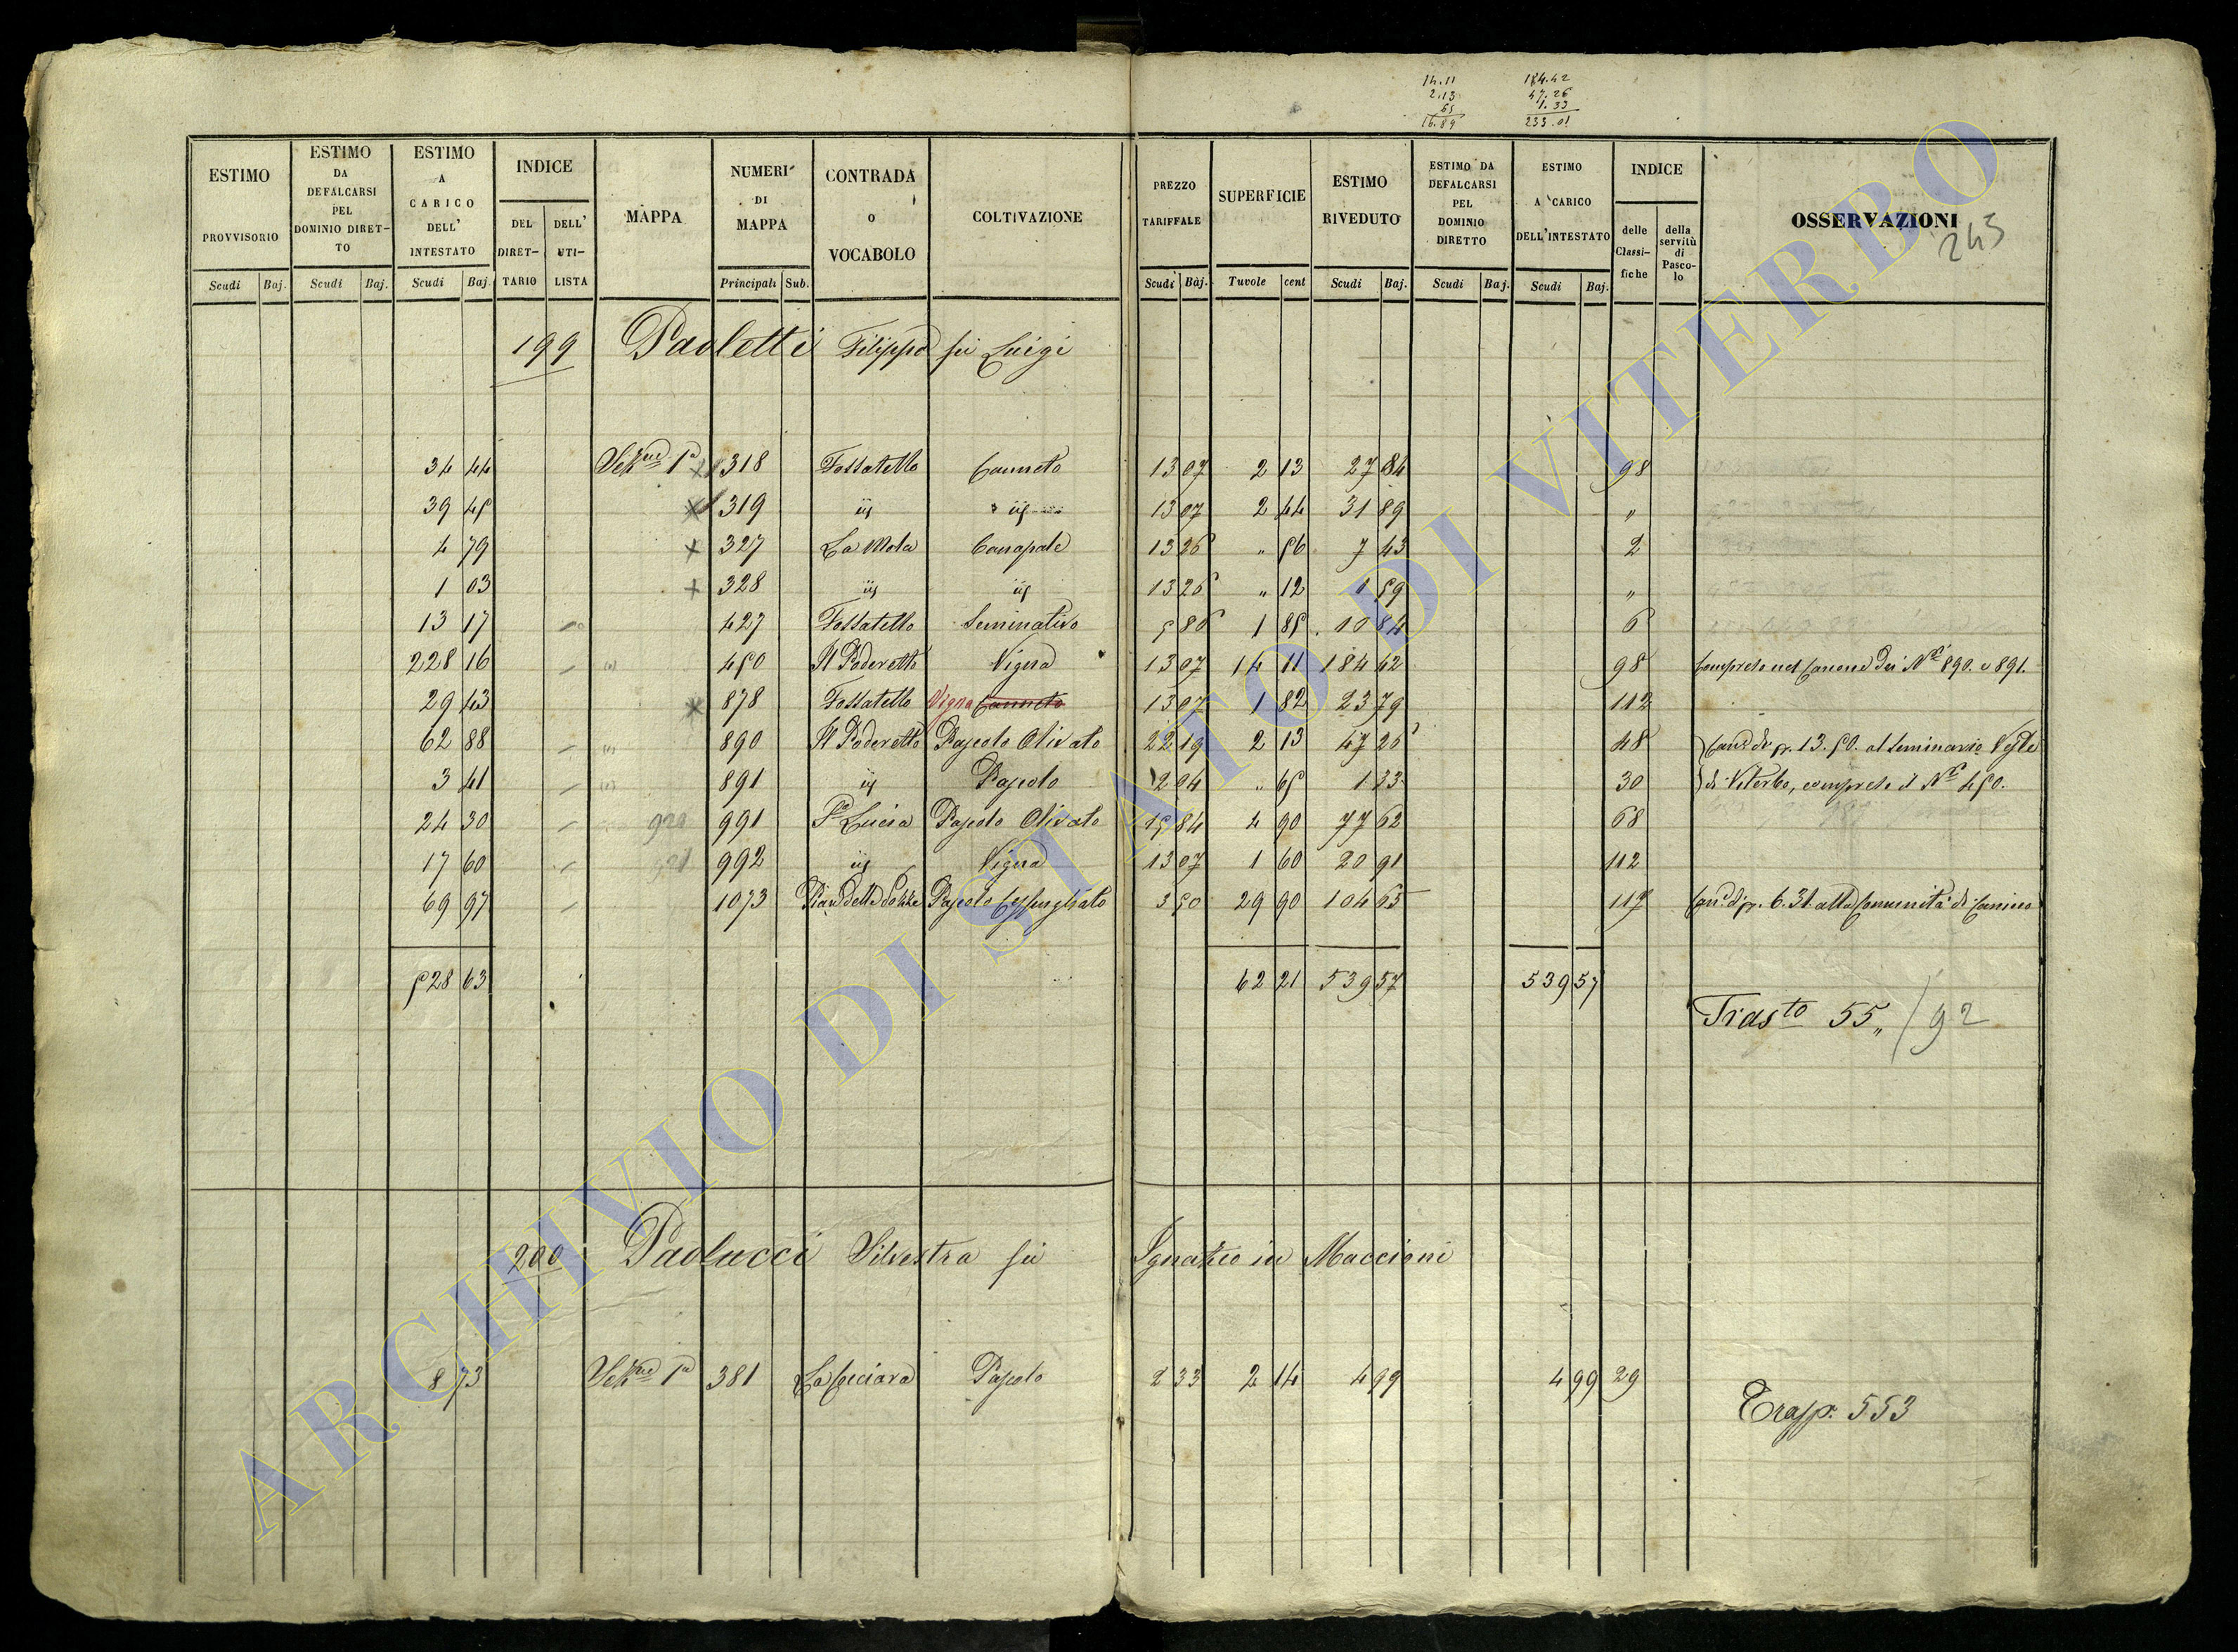 14.11 184.42
2.13 47.26
65 1.33
16.89 233.01
ESTIMO PROVVISORIO Scudi Baj.
ESTIMO DA DEFALCARSI PEL DOMINIO DIRETTO Scudi Baj.
ESTIMO A CARICO DELL' INTESTATO Scudi Baj.
INDICE DEL DIRETTARIO DELL' UTILISTA
MAPPA
NUMERI DI MAPPA Principali Sub.
CONTRADA O VOCABOLO
COLTIVAZIONE
PREZZO TARIFFALE Scudi Baj.
SUPERFICIE Tavole cent
ESTIMO RIVEDUTO Scudi Baj.
ESTIMO DA DEFALCARSI PEL DOMINIO DIRETTO Scudi Baj.
ESTIMO A CARICO DELL'INTESTATO Scudi Baj.
INDICE delle Classifiche della servitù di Pascolo
OSSERVAZIONI
243
199 Paoletti Filippo fù Luigi
34 44 Sezne 1a 318 Fossatello Canneto 13 07 2 13 27 84 98
39 45 319 " " 13 07 2 44 31 89 "
4 79 327 La Mola Canapale 13 26 " 56 7 43 2
1 03 328 " " 13 26 " 12 1 59 "
13 17 427 Fossatello Seminativo 5 86 1 85 10 84 6
228 16 450 Il Poderetto Vigna 13 07 14 11 184 42 98 Compreso nel Canone dei Ni 890. e 891.
29 43 878 Fossatello Vigna Canneto 13 07 1 82 23 79 112
62 88 890 Il Poderetto Pascolo Olivato 22 19 2 13 47 26 48 Cane di 13.50. al Seminario
3 41 891 " Pascolo 2 04 " 65 1 33 30 di Viterbo, compreso il No 450.
24 30 991 Sa Lucia Pascolo Olivato 15 84 4 90 77 62 68
17 60 992 " Vigna 13 07 1 60 20 91 112
69 97 1073 Pian delle Pascolo Cespugliato 3 50 29 90 104 65 117 6.31. alla Comunità di Canino
528 63 62 21 539 57 539 57
Trasto 55,, / 92
200 Paolucci Silvestra fù Ignazio in Maccioni
8 73 Sezne 1a 381 La Cociara Pascolo 2 33 2 14 4 99 4 99 29
Trasp. 553
ARCHIVIO DI STATO DI VITERBO